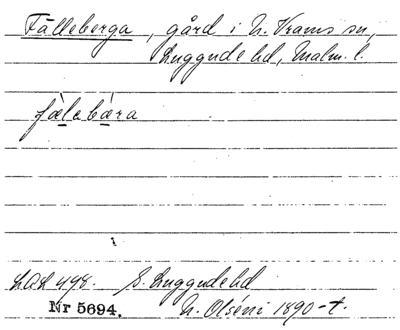 Fälleberga, gård i N. Vrams sn,
Luggude hd, Malm. l.
fælebæra
LAL 498. S. Luggude hd
Nr 5694. N. Olséni 1890-t.